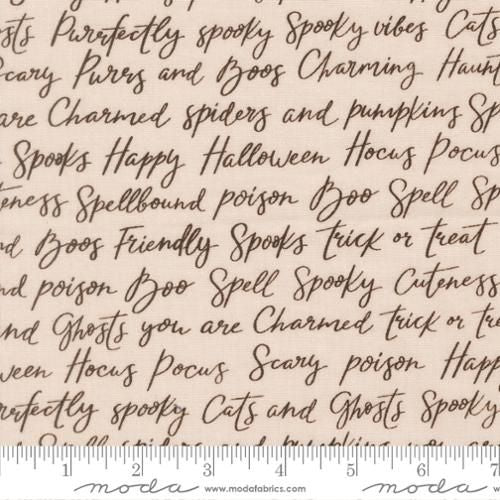 osts Purrfectly spooky Spooky vibes Cats
Scary Purrs and Boos Charming Haunt
are Charmed spiders and pumpkins Sp
Spooks Happy Halloween Hocus Pocus
uteness Spellbound poison Boo Spell Sp
nd Boos Friendly Spooks trick or treat
nd poison Boo Spell Spooky Cuteness
and Ghosts you are Charmed trick or tre
ween Hocus Pocus Scary poison Happ
urrfectly spooky Cats and Ghosts Spooky
Spell spiders and pumpkins you are
1 2 3 4 5 6 7
moda www.modafabrics.com moda www.modafabrics.com moda w